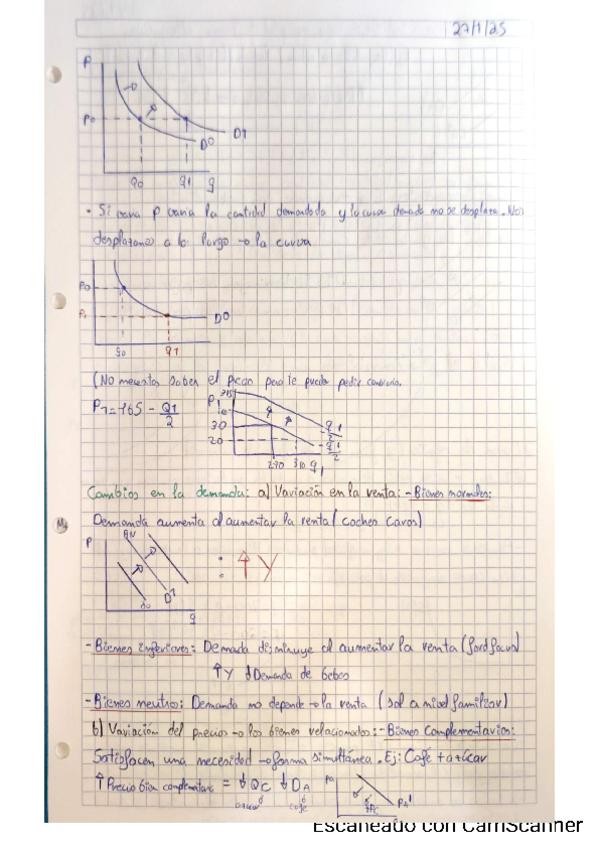 27/1/25
P
P0
D1
D0
q0 q1 q
• Si varia P varia la cantidad demandada y la curva demada no se desplaza. Nos
desplazamos a lo largo la curva
P0
P1
D0
q0 q1
(No necesitas saber el pero te puede pedir
P1 = 165 - Q1/2
P1
30
20
270 310 q1
Cambios en la demanda: a) Variación en la renta: - Bienes normales:
Demanda aumenta al aumentar la renta (coches caros)
P
D1
D0
q
: ↑Y
- Bienes inferiores: Demada disminuye al aumentar la renta (ford focus)
↑Y ↓Demanda de
- Bienes neutros: Demanda no depende la renta (sal a nivel familiar)
b) Variación del precio los bienes relacionados: - Bienes Complementarios:
Satisfacen una necesidad forma simultánea. Ej: Café + azúcar
↑ Precio bien complementario = ↓QC ↓DA
azucar café
Escaneado con CamScanner